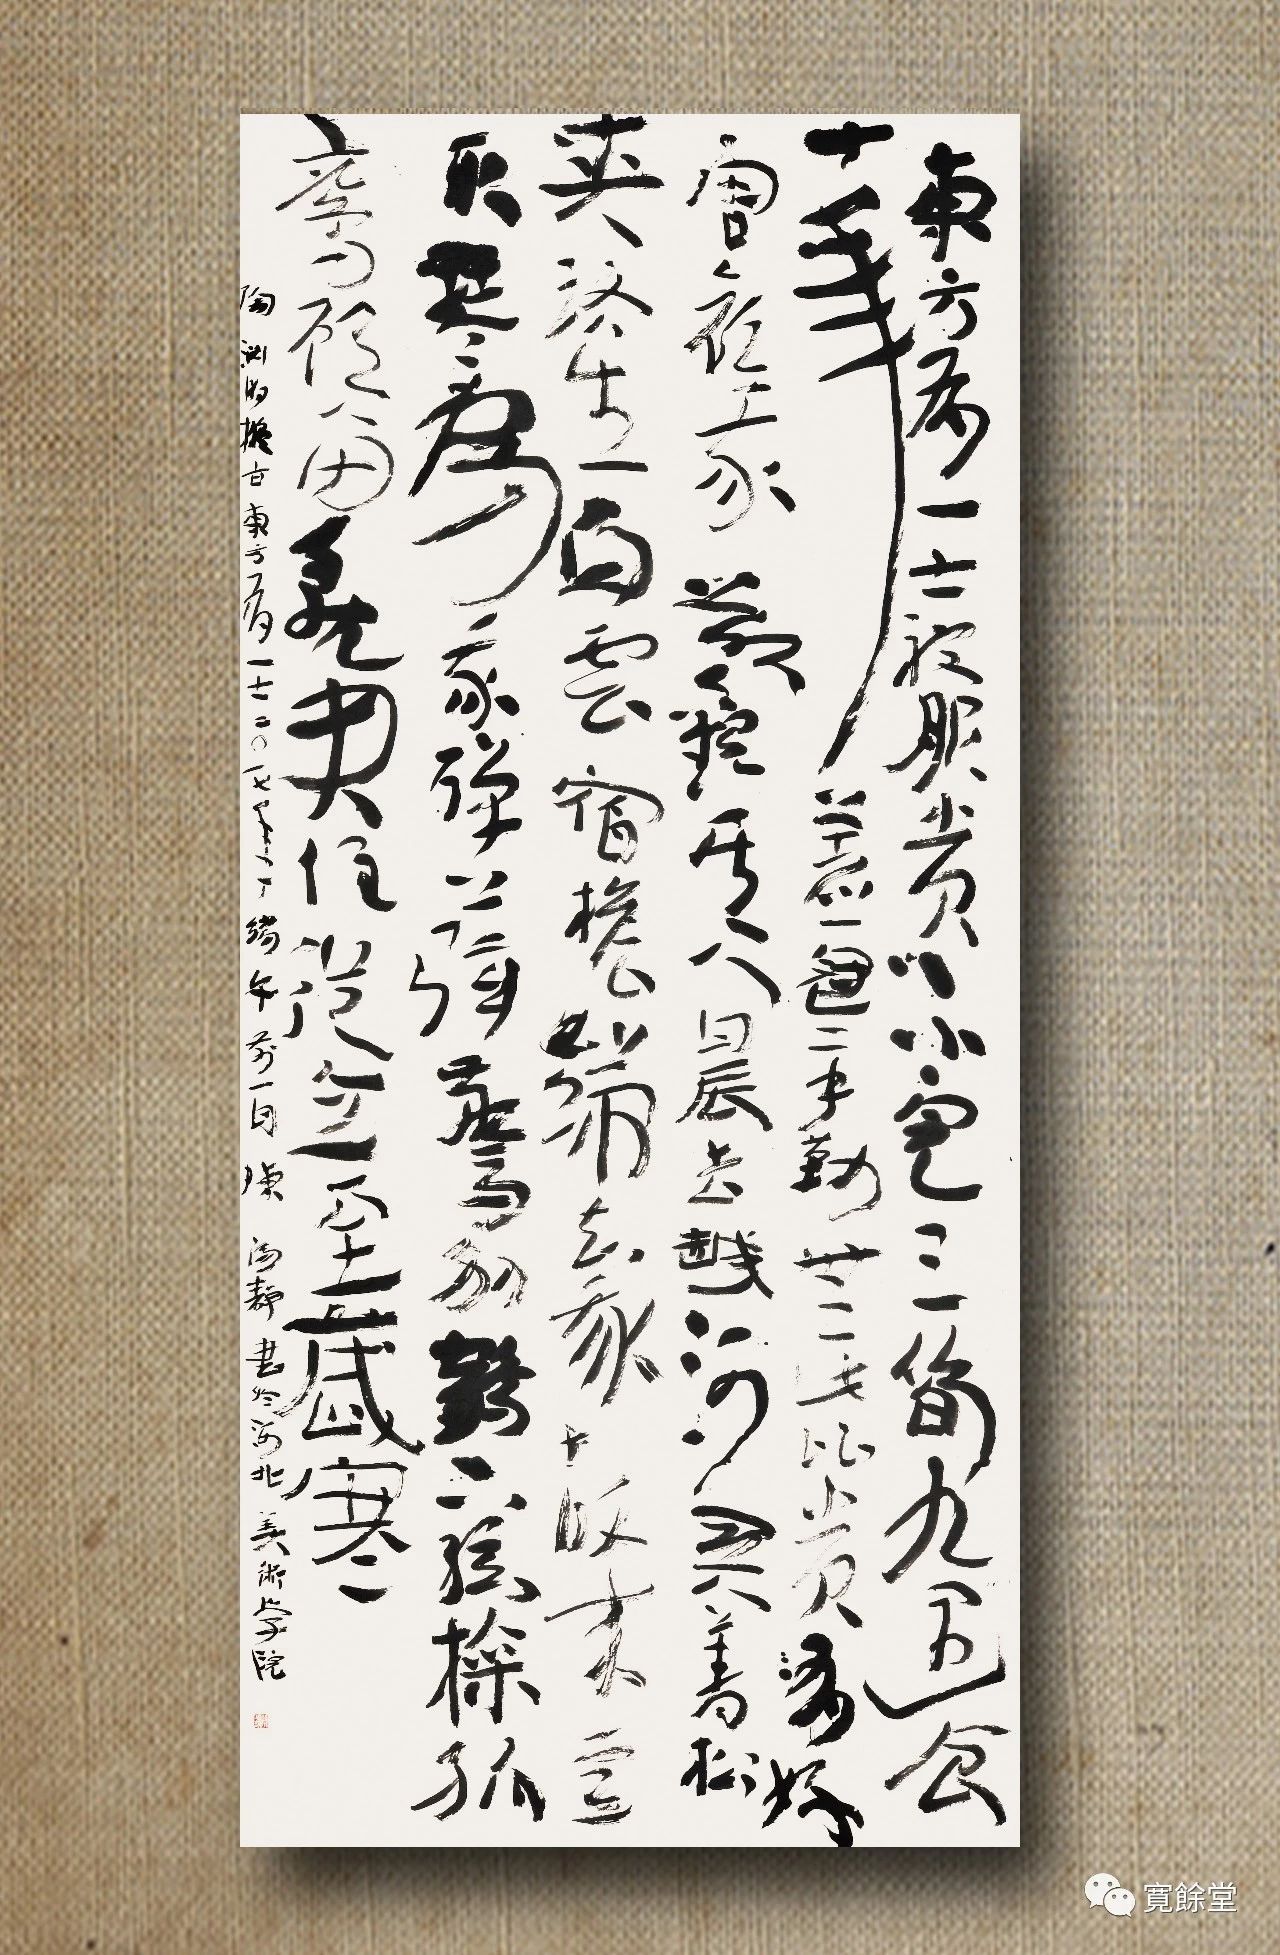 東方有一士被服常不完三旬九遇食
十年著一冠辛勤無此比常有好
容顏我欲觀其人晨去越河關青松
夾路生白雲宿檐端知我故來意
取琴為我彈上弦驚別鶴下弦操孤
鸞願留就君住從今至歲寒
陶淵明擬古東方有一士二〇一七年端午前一日陳海靜書於河北美術學院
寬餘堂